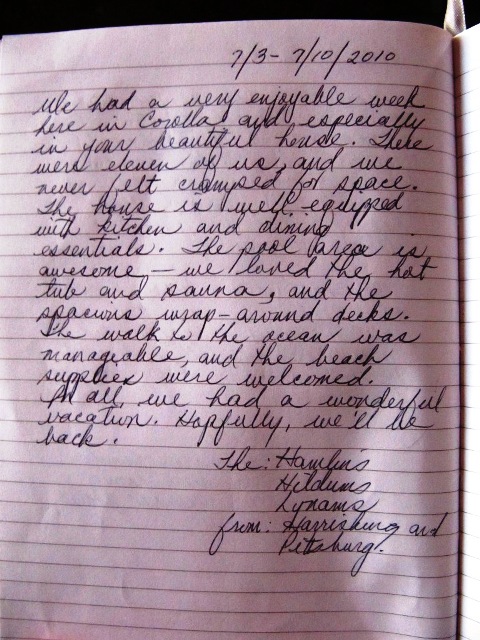 7/3 - 7/10/2010
We had a very enjoyable week
here in Corolla and especially
in your beautiful house. There
were eleven of us, and we
never felt cramped for space.
The house is well-equipped
with kitchen and dining
essentials. The pool area is
awesome - we loved the hot
tub and sauna, and the
spacious wrap-around decks.
The walk to the ocean was
manageable, and the beach
supplies were welcomed.
All, we had a wonderful
vacation. Hopfully, we'll be
back.
The: Hamlin's
Hildums
Lynams
from: Harrisburg and
Pittsburg.